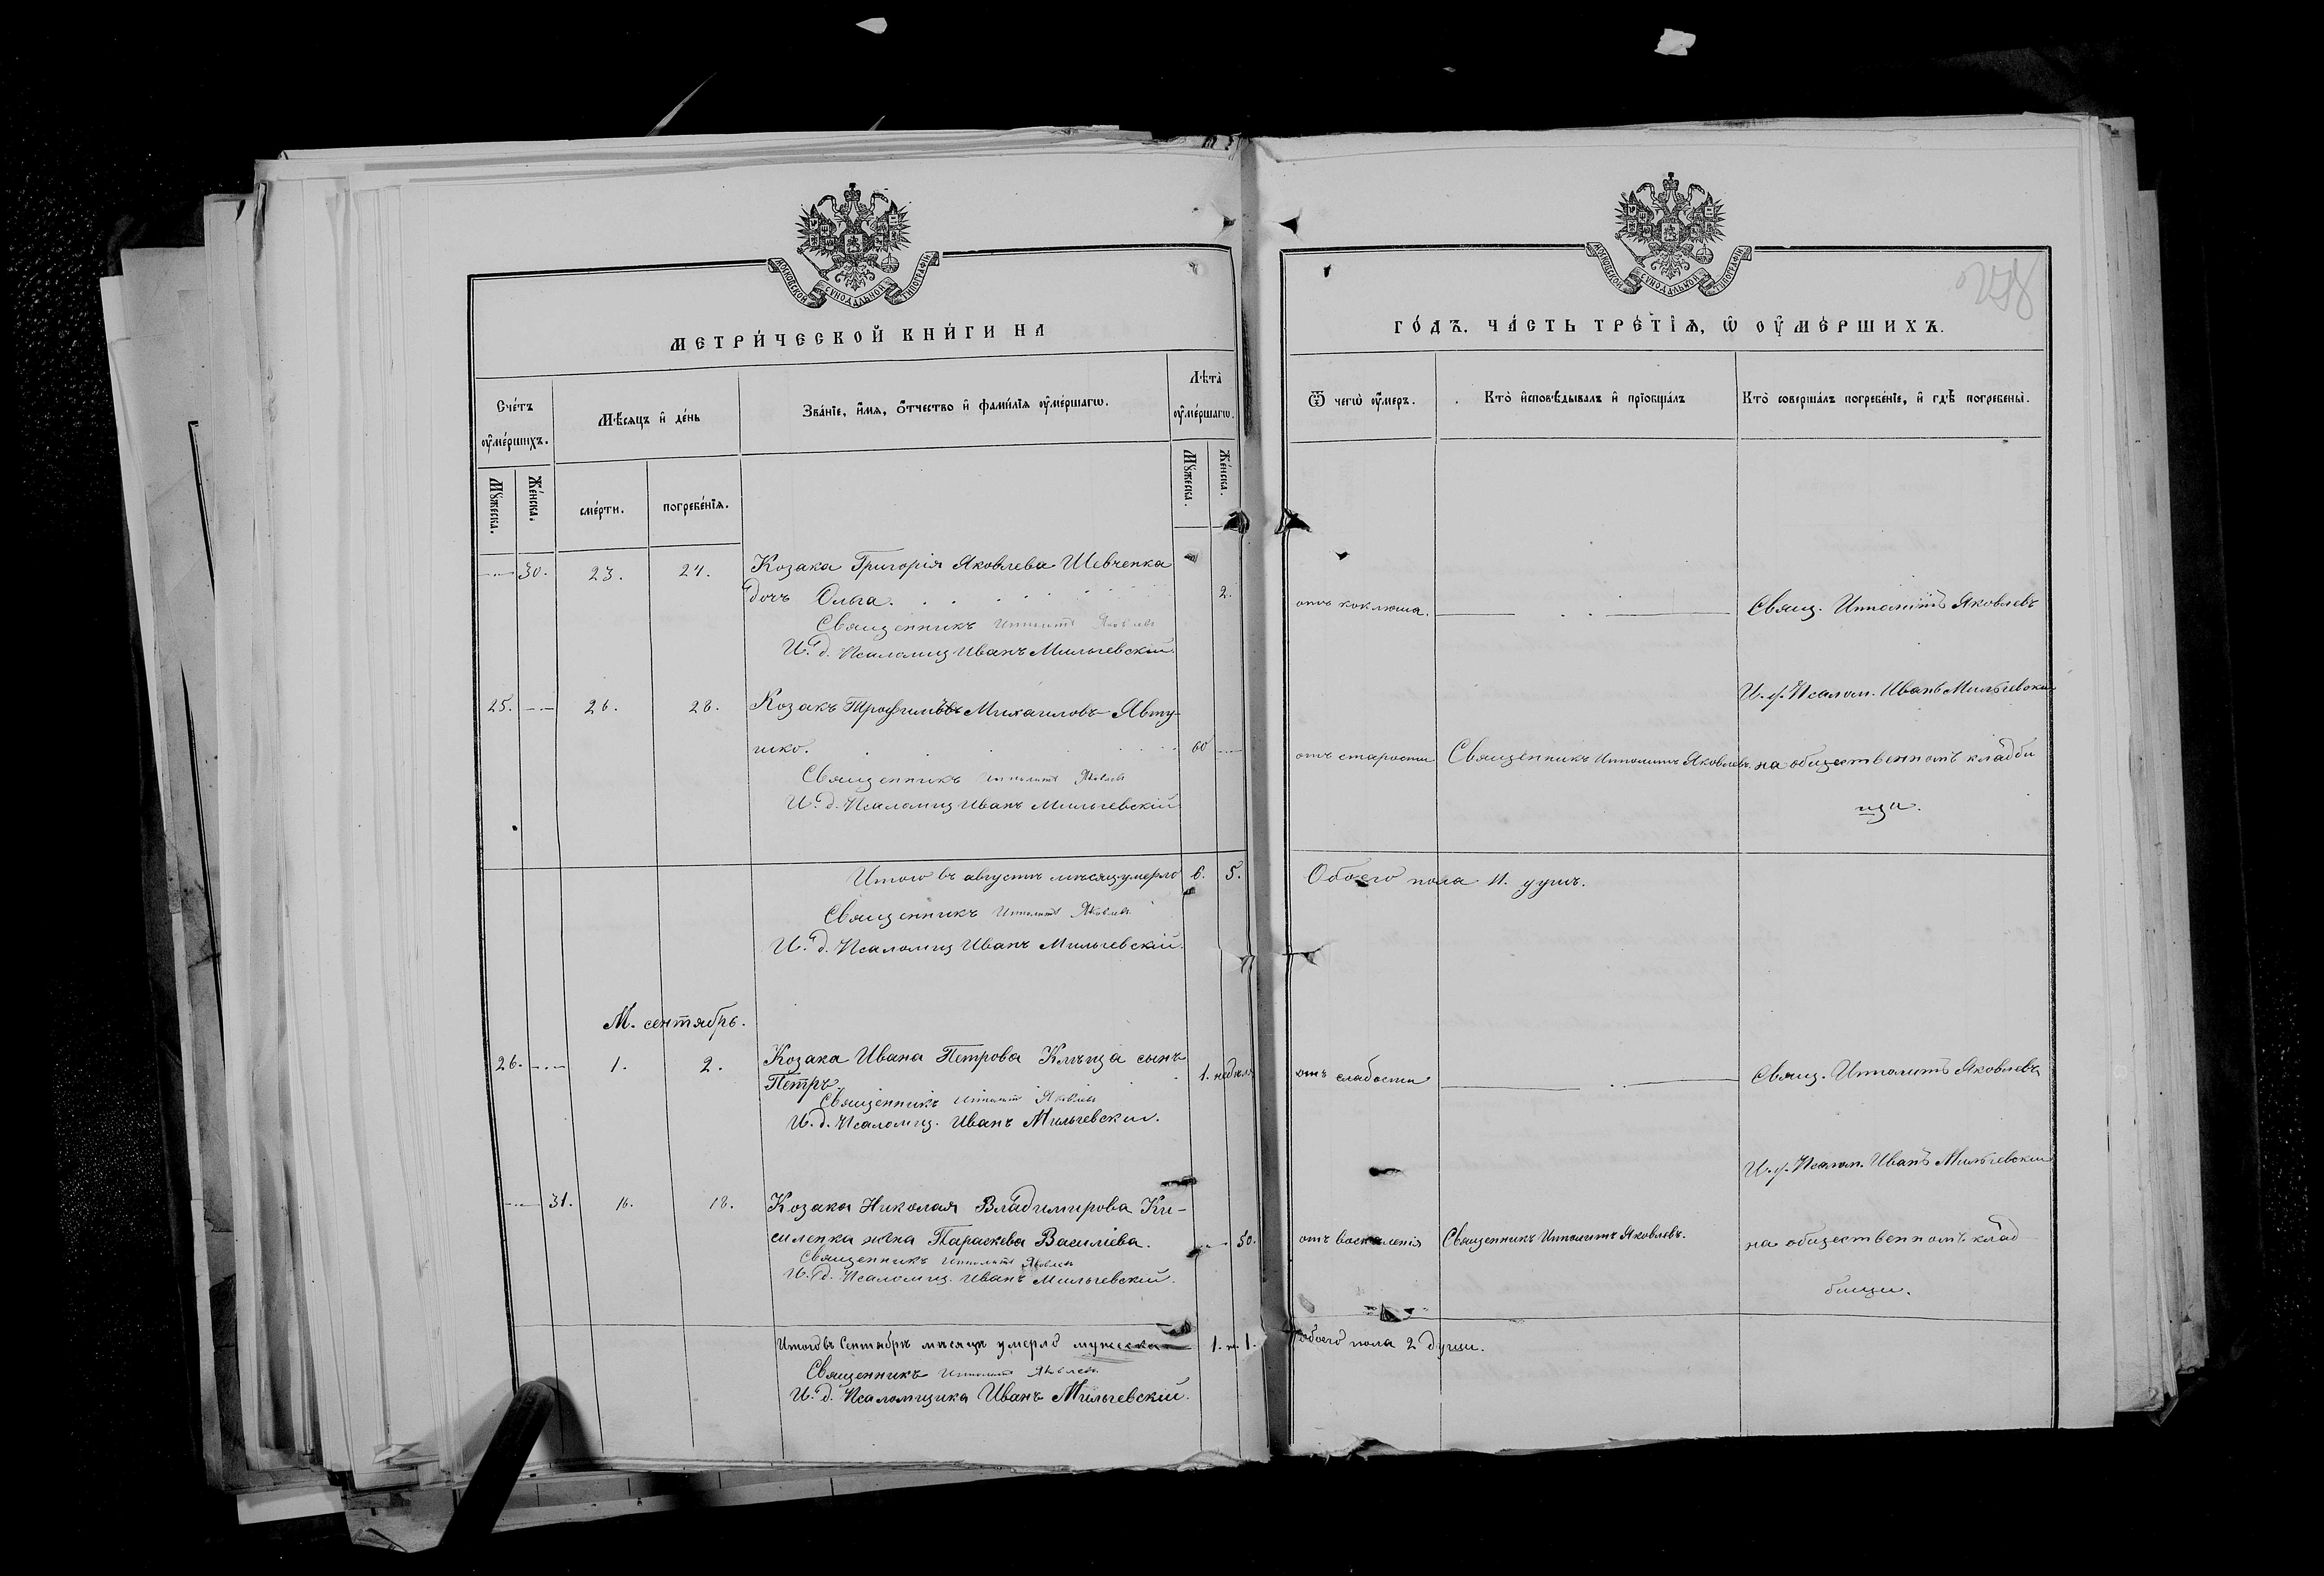 МОСКОВСКОЙ СУНОДАЛЬНОЙ ТИПОГРАФІИ
МЕТРИ́ЧЕСКОЙ КНИ́ГИ НА
Сче́тъ оу҆ме́ршихъ.
Мѣ́сяцъ и҆ де́нь
Зва́нїе, и҆́мя, ѻ҆́тчество и҆ фами́лїя оу҆ме́ршагѡ.
Лѣта̀ оу҆ме́ршагѡ.
Мꙋ́жеска.
Же́нска.
сме́рти.
погребе́нїя.
Мꙋ́жеска.
Же́нска.
30. 23. 24. Козака Григорія Яковлева Шевченка
дочь Ольга. 2.
Священникъ Ипполитъ Яковлевъ
И. д. Псаломщ Иванъ Мильчевскій.
25. 26. 28. Козакъ Трофимъ Михаиловъ Явту-
шко. 60
Священникъ Ипполитъ Яковлевъ
И. д. Псаломщ Иванъ Мильчевскій
Итого въ августѣ мѣсяц умерло 6. 5.
Священникъ Ипполитъ Яковлевъ
И. д. Псаломщ Иванъ Мильчевскій.
М. сентябрь.
26. 1. 2. Козака Ивана Петрова сынъ
Петръ. 1. недѣля
Священникъ Ипполитъ Яковлевъ
И. д. Псаломщ. Иванъ Мильчевскій.
31. 16. 18. Козака Николая Владимирова Ки-
силенка жена Параскева Василіева. 50.
Священникъ Ипполитъ Яковлевъ
И. д. Псаломщ. Иванъ Мильчевскій.
Итого въ Сентябрѣ мѣсяцѣ умерло мужеска 1. ж. 1.
Священникъ Ипполитъ Яковлевъ
И. д. Псаломщика Иванъ Мильчевскій.
МОСКОВСКОЙ СУНОДАЛЬНОЙ ТИПОГРАФІИ
ГО́ДЪ. ЧА́СТЬ ТРЕ́ТЇЯ, Ѡ҆ ОУ҆МЕ́РШИХЪ.
Ѿ чегѡ̀ оу҆́меръ.
Кто̀ и҆сповѣ́дывалъ и҆ прїѡбща́лъ
Кто̀ соверша́лъ погребе́нїе, и҆ гдѣ̀ погребены̀.
отъ коклюша. Свящ. Ипполитъ Яковлевъ
И. д. Псалом. Иванъ Мильчевскій
отъ старости Священникъ Ипполитъ Яковлевъ. на общественномъ кладби
щи.
Обоего пола 11. душъ.
отъ слабости Свящ. Ипполитъ Яковлевъ
И. д. Псалом. Иванъ Мильчевскій
отъ воспаленія Священникъ Ипполитъ Яковлевъ. на общественномъ клад
бищи.
обоего пола 2 души.